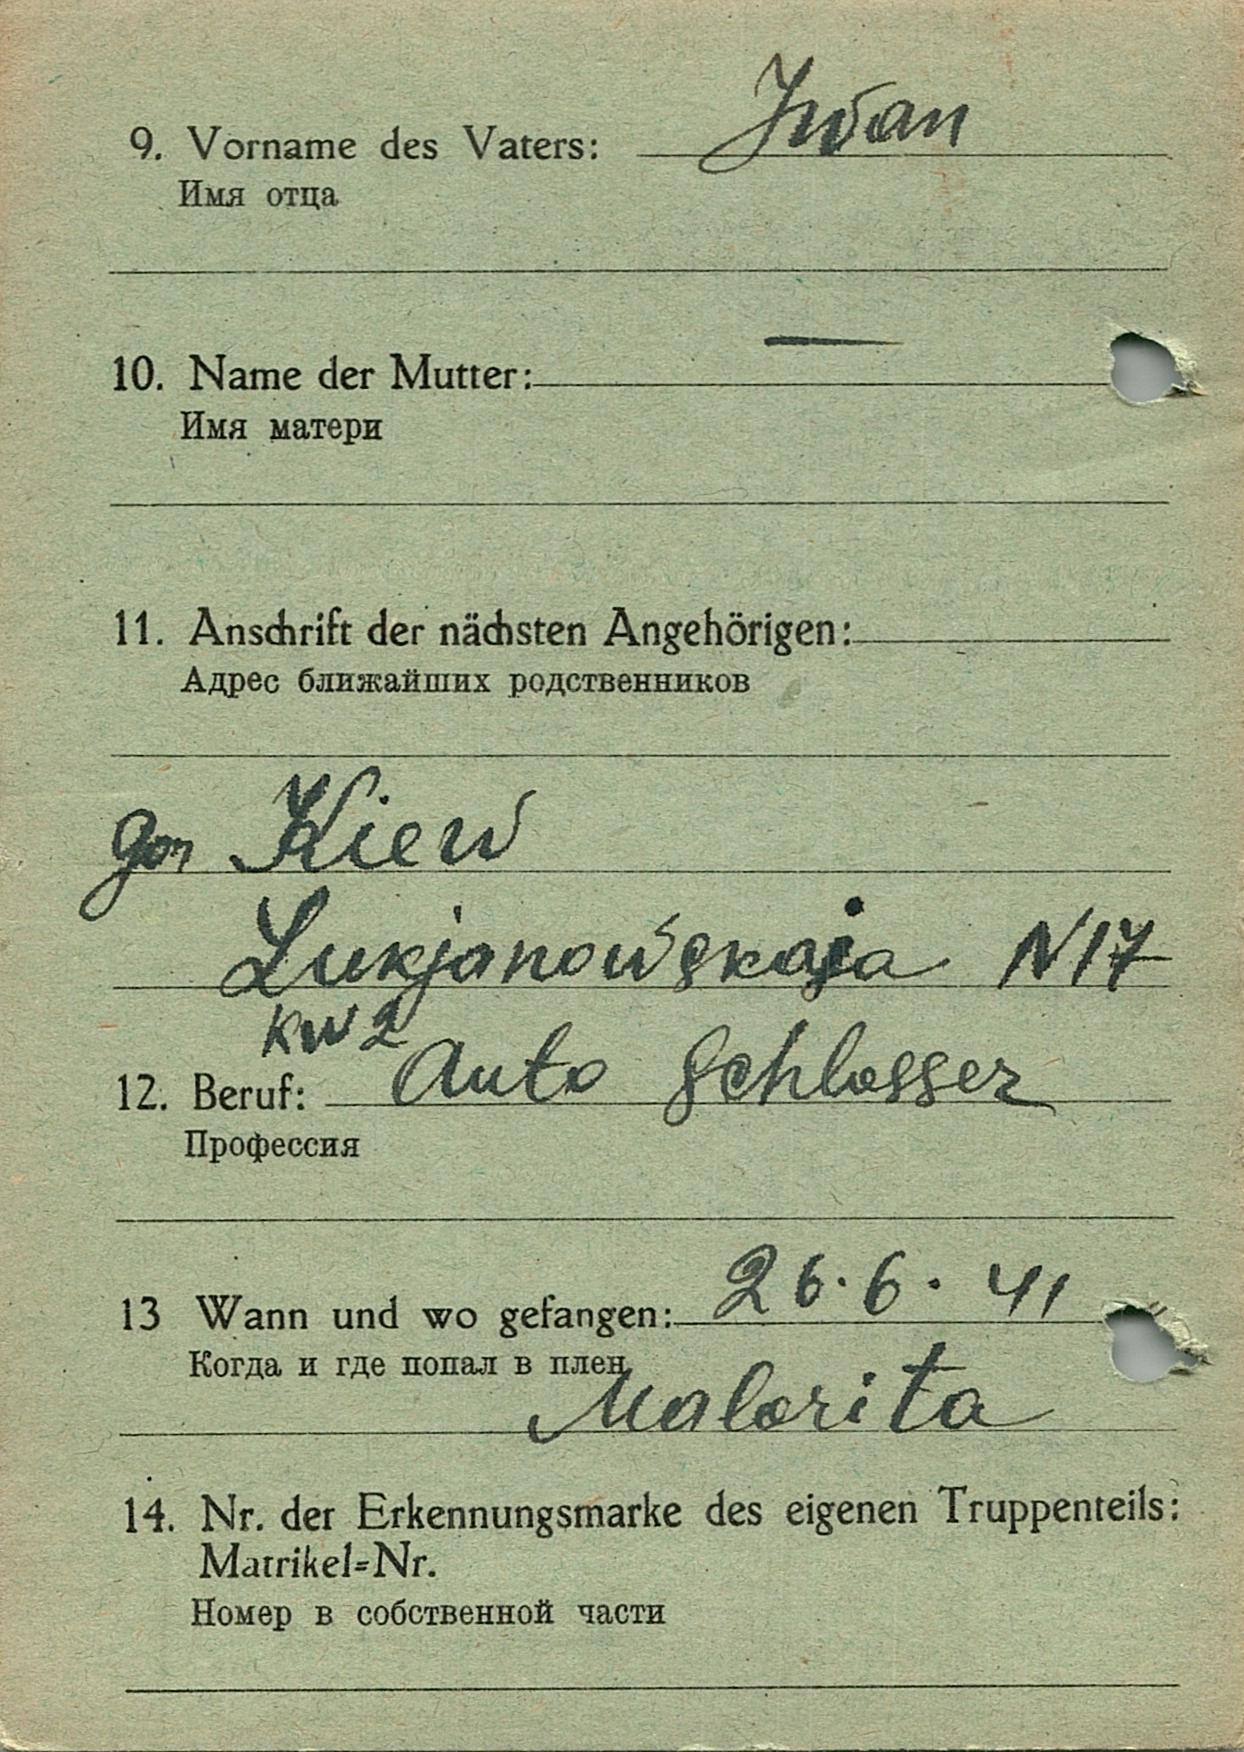 9. Vorname des Vaters: Iwan
Имя отца
10. Name der Mutter: —
Имя матери
11. Anschrift der nächsten Angehörigen:
Адрес ближайших родственников
gor Kiew
Lukjanowskaja N 17
kw 2
12. Beruf: Auto Schlosser
Профессия
13 Wann und wo gefangen: 26.6.41
Когда и где попал в плен
Malorita
14. Nr. der Erkennungsmarke des eigenen Truppenteils:
Matrikel=Nr.
Номер в собственной части